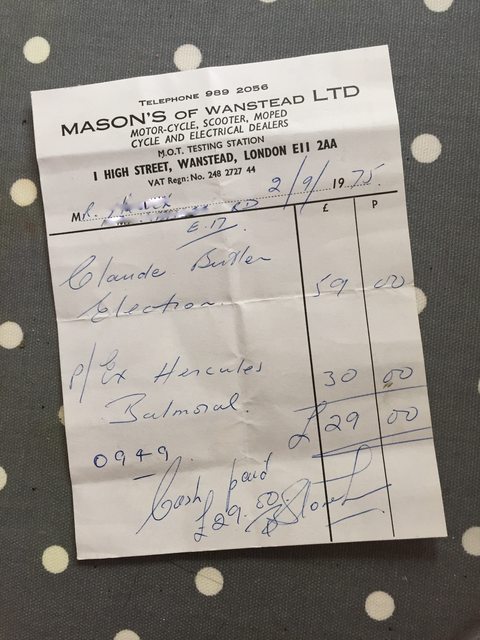 TELEPHONE 989 2056
MASON'S OF WANSTEAD LTD
MOTOR-CYCLE, SCOOTER, MOPED
CYCLE AND ELECTRICAL DEALERS
M.O.T. TESTING STATION
1 HIGH STREET, WANSTEAD, LONDON E11 2AA
VAT Regn: No. 248 2727 44
2/9/1975.
MR.
E.17.
£ P
Claude Butler
Election 59 00
P/Ex Hercules 30 00
Balmoral. £29 00
0949.
Cash paid
£29.00